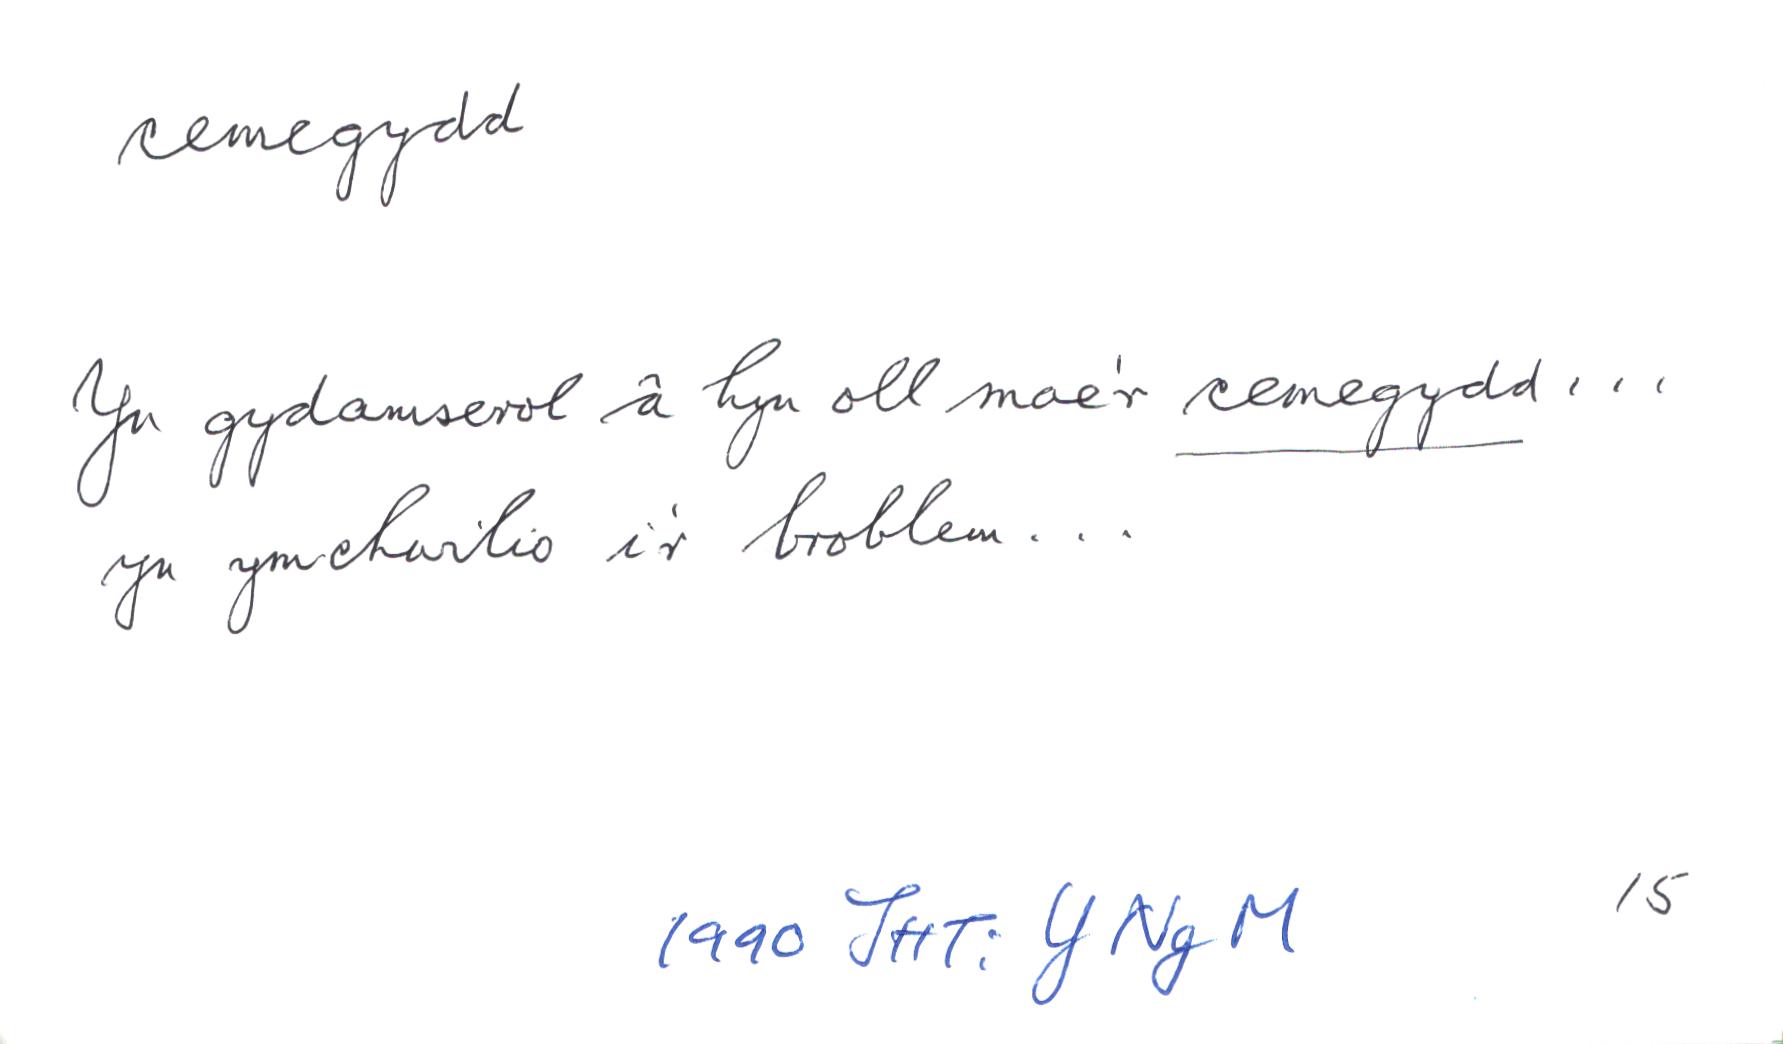 cemegydd
Yn gydamserol â hyn oll mae'r cemegydd...
yn ymchwilio i'r broblem...
1990 JHT: Y Ng M
15